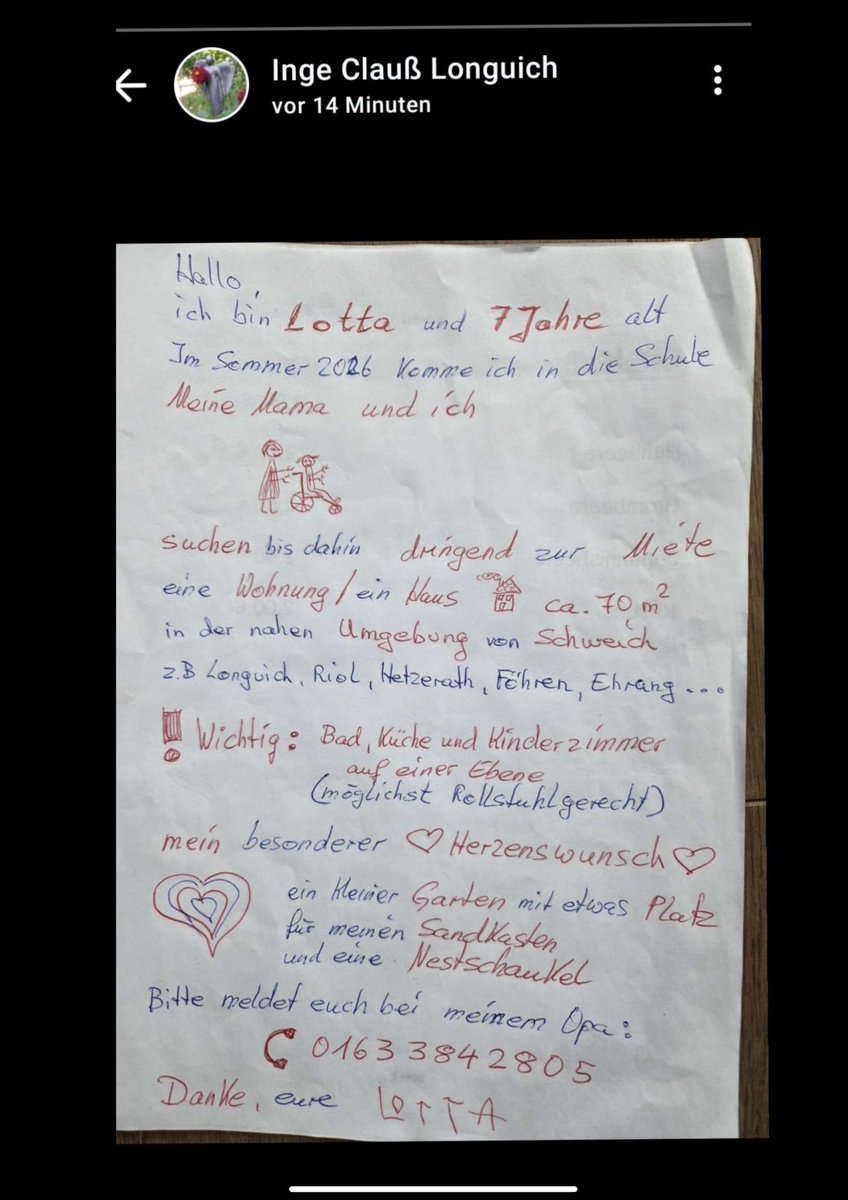 Inge Clauß Longuich
vor 14 Minuten
Hallo,
ich bin Lotta und 7 Jahre alt
Im Sommer 2026 komme ich in die Schule
Meine Mama und ich
suchen bis dahin dringend zur Miete
eine Wohnung / ein Haus ca. 70 m²
in der nahen Umgebung von Schweich
z.B Longuich, Riol, Hetzerath, Föhren, Ehrang...
! Wichtig: Bad, Küche und Kinderzimmer
auf einer Ebene
(möglichst Rollstuhlgerecht)
mein besonderer ♡ Herzenswunsch ♡
ein kleiner Garten mit etwas Platz
für meinen Sandkasten
und eine Nestschaukel
Bitte meldet euch bei meinem Opa:
01633842805
Danke, eure LOTTA